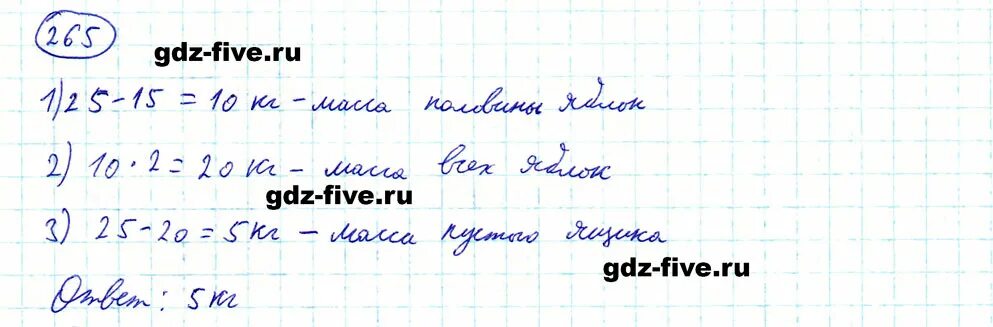 265
gdz-five.ru
1) 25-15 = 10 кг - масса половины яблок
2) 10·2 = 20 кг - масса всех яблок
gdz-five.ru
3) 25-20 = 5 кг - масса пустого ящика
gdz-five.ru
Ответ: 5 кг